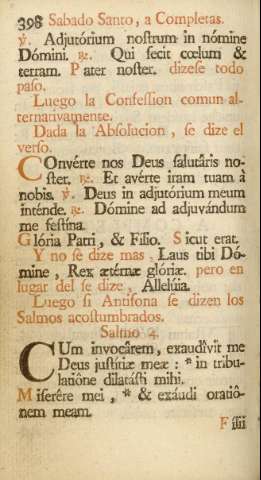 398 Sabado Santo, a Completas.
℣. Adjutórium nostrum in nómine
Dómini. ℟. Qui fecit cœlum &
terram. Pater noster. dizese todo
paso.
Luego la Confession comun al-
ternativamente.
Dada la Absolucion, se dize el
verso.
COnvérte nos Deus salutáris no-
ster. ℟. Et avérte iram tuam à
nobis. ℣. Deus in adjutórium meum
inténde. ℟. Dómine ad adjuvándum
me festína.
Glória Patri, & Filio. Sicut erat.
Y no se dize mas, Laus tibi Dó-
mine, Rex ætérnæ glóriæ. pero en
lugar del se dize, Allelúia.
Luego si Antifona se dizen los
Salmos acostumbrados.
Salmo 4.
CUm invocârem, exaudívit me
Deus justítiæ meæ: * in tribu-
latiône dilatásti mihi.
Miserére mei, * & exáudi oratiô-
nem meam.
Filii